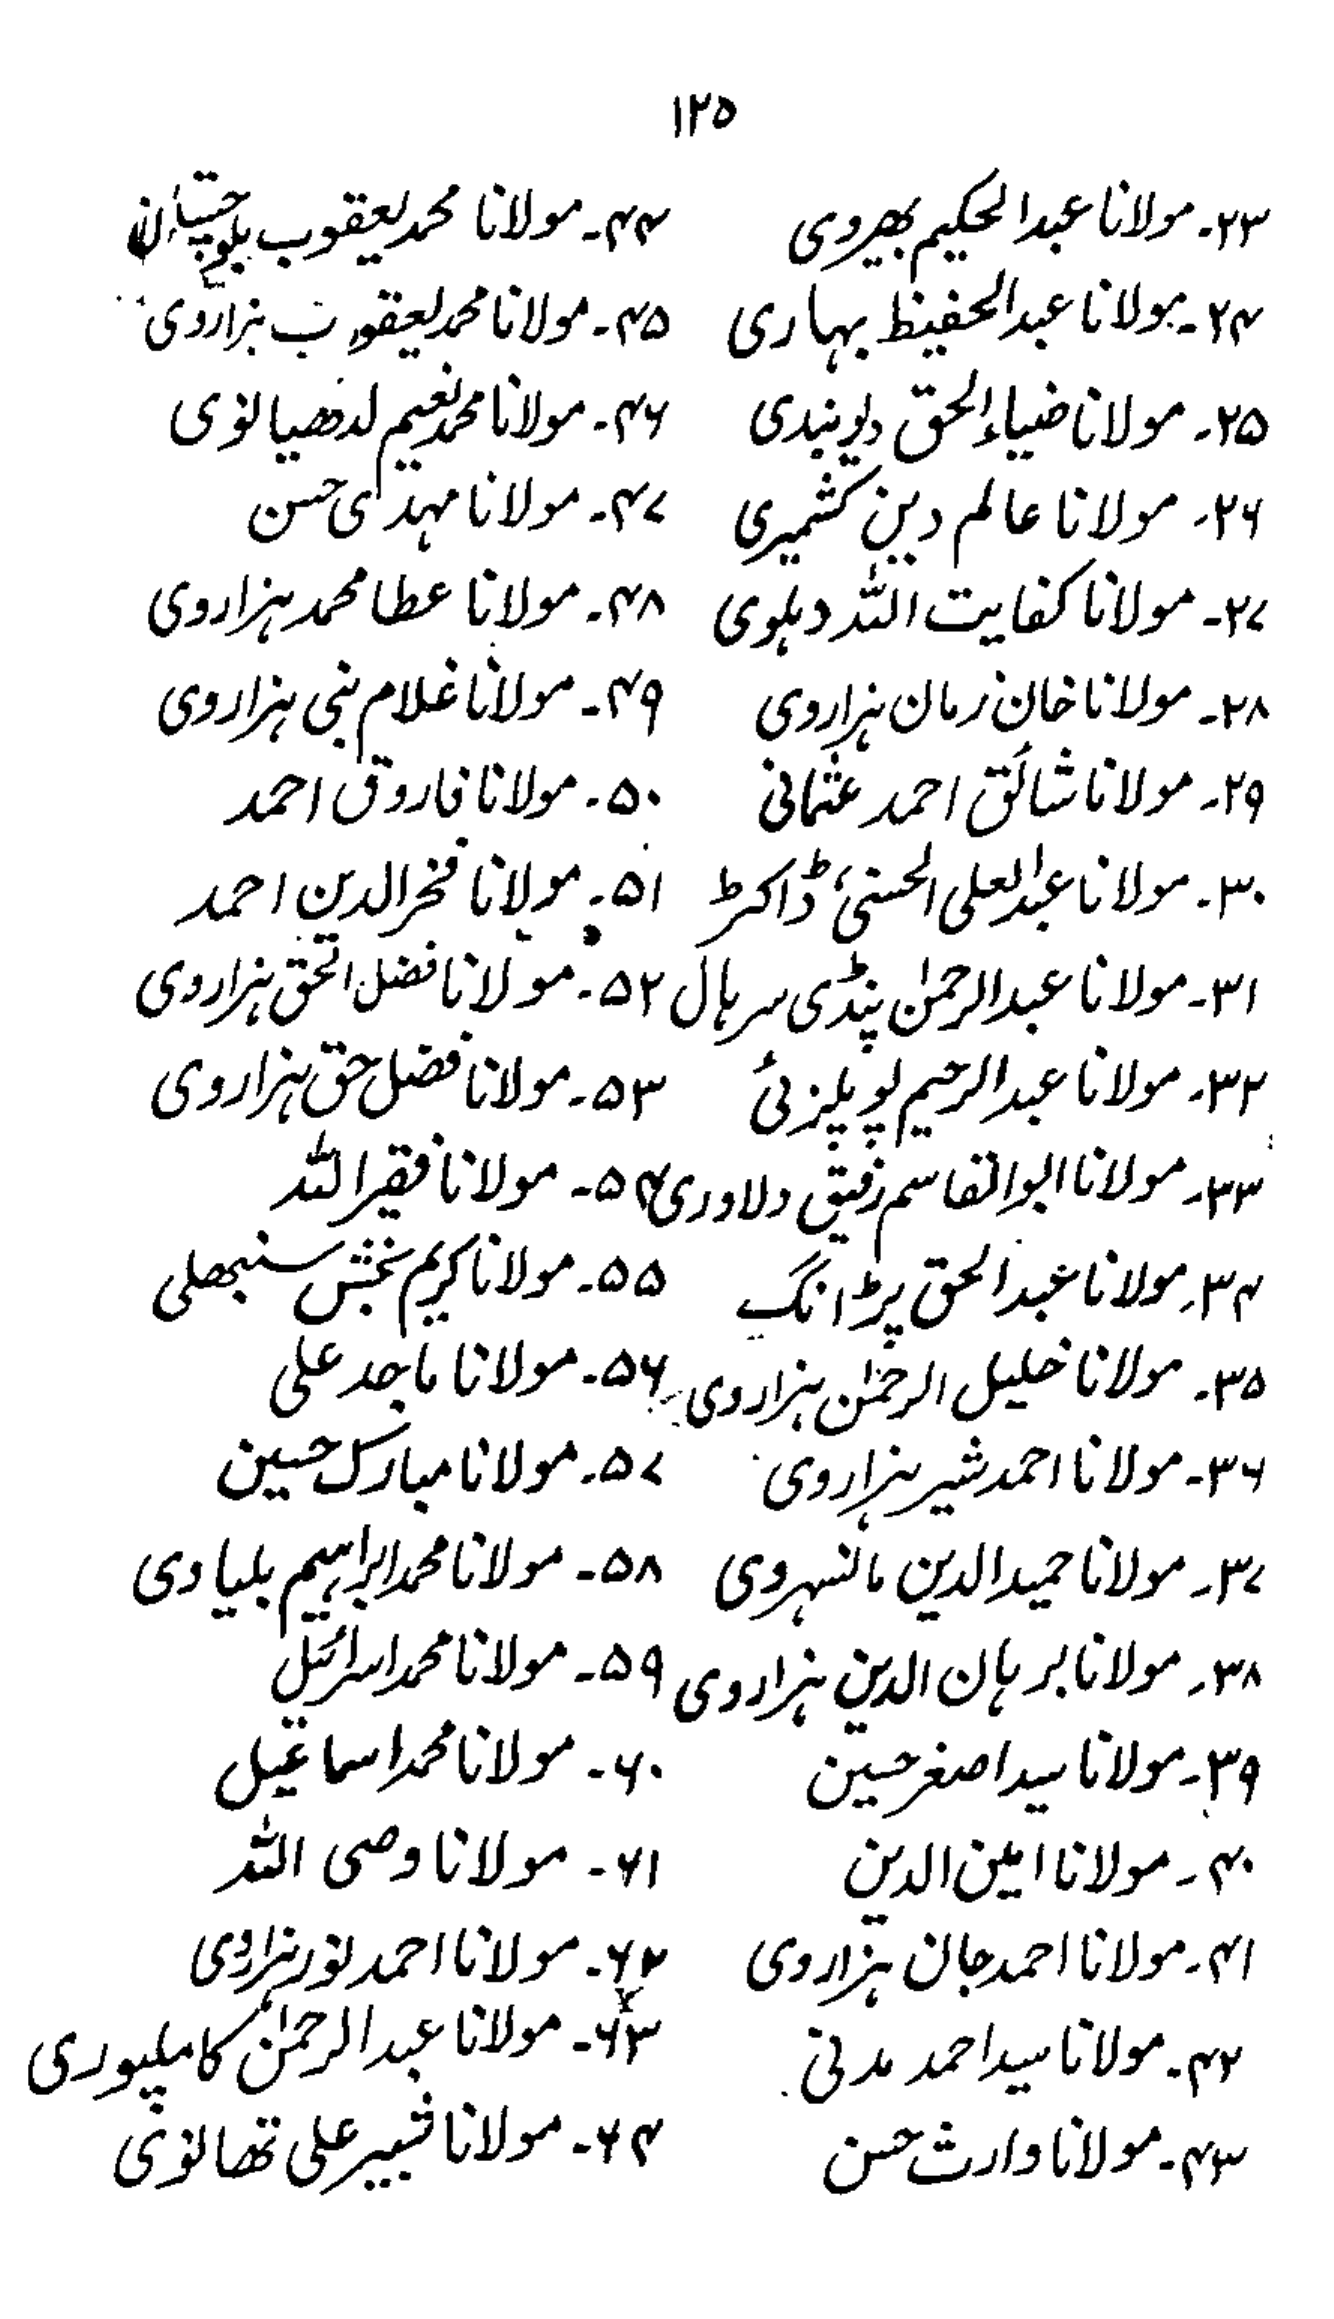 ۱۲۵
۲۳۔ مولانا عبدالحکیم بھیروی
۲۴۔ مولانا عبدالحفیظ بہاری
۲۵۔ مولانا ضیاءالحق دیوبندی
۲۶۔ مولانا عالم دین کشمیری
۲۷۔ مولانا کفایت اللہ دہلوی
۲۸۔ مولانا خان زمان ہزاروی
۲۹۔ مولانا شائق احمد عثمانی
۳۰۔ مولانا عبدالعلی الحسنی، ڈاکٹر
۳۱۔ مولانا عبدالرحمٰن پنڈی سرہال
۳۲۔ مولانا عبدالرحیم پوپلزئی
۳۳۔ مولانا ابوالقاسم رفیق دلاوری
۳۴۔ مولانا عبدالحق پڑانگ
۳۵۔ مولانا خلیل الرحمٰن ہزاروی
۳۶۔ مولانا احمد شیر ہزاروی
۳۷۔ مولانا حمیدالدین مانسہروی
۳۸۔ مولانا برہان الدین ہزاروی
۳۹۔ مولانا سید اصغر حسین
۴۰۔ مولانا امین الدین
۴۱۔ مولانا احمد جان ہزاروی
۴۲۔ مولانا سید احمد مدنی
۴۳۔ مولانا وارث حسن
۴۴۔ مولانا محمد یعقوب بلوچستان
۴۵۔ مولانا محمد یعقوب ہزاروی
۴۶۔ مولانا محمد نعیم لدھیانوی
۴۷۔ مولانا مہدی حسن
۴۸۔ مولانا عطا محمد ہزاروی
۴۹۔ مولانا غلام نبی ہزاروی
۵۰۔ مولانا فاروق احمد
۵۱۔ مولانا فخرالدین احمد
۵۲۔ مولانا فضل الحق ہزاروی
۵۳۔ مولانا فضل حق ہزاروی
۵۴۔ مولانا فقیر اللہ
۵۵۔ مولانا کریم بخش سنبھلی
۵۶۔ مولانا ماجد علی
۵۷۔ مولانا مبارک حسین
۵۸۔ مولانا محمد ابراہیم بلیاوی
۵۹۔ مولانا محمد اسرائیل
۶۰۔ مولانا محمد اسماعیل
۶۱۔ مولانا وصی اللہ
۶۲۔ مولانا احمد نور ہزاروی
۶۳۔ مولانا عبدالرحمٰن کاملپوری
۶۴۔ مولانا شبیر علی تھانوی